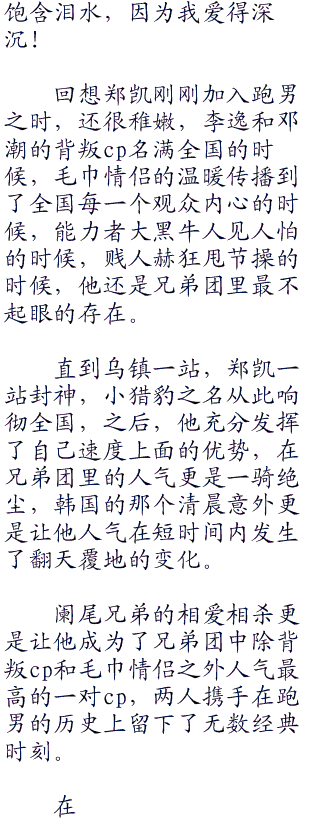 饱含泪水，因为我爱得深
沉！
回想郑凯刚刚加入跑男
之时，还很稚嫩，李逸和邓
潮的背叛cp名满全国的时
候，毛巾情侣的温暖传播到
了全国每一个观众内心的时
候，能力者大黑牛人见人怕
的时候，贱人赫狂甩节操的
时候，他还是兄弟团里最不
起眼的存在。
直到乌镇一站，郑凯一
站封神，小猎豹之名从此响
彻全国，之后，他充分发挥
了自己速度上面的优势，在
兄弟团里的人气更是一骑绝
尘，韩国的那个清晨意外更
是让他人气在短时间内发生
了翻天覆地的变化。
阑尾兄弟的相爱相杀更
是让他成为了兄弟团中除背
叛cp和毛巾情侣之外人气最
高的一对cp，两人携手在跑
男的历史上留下了无数经典
时刻。
在